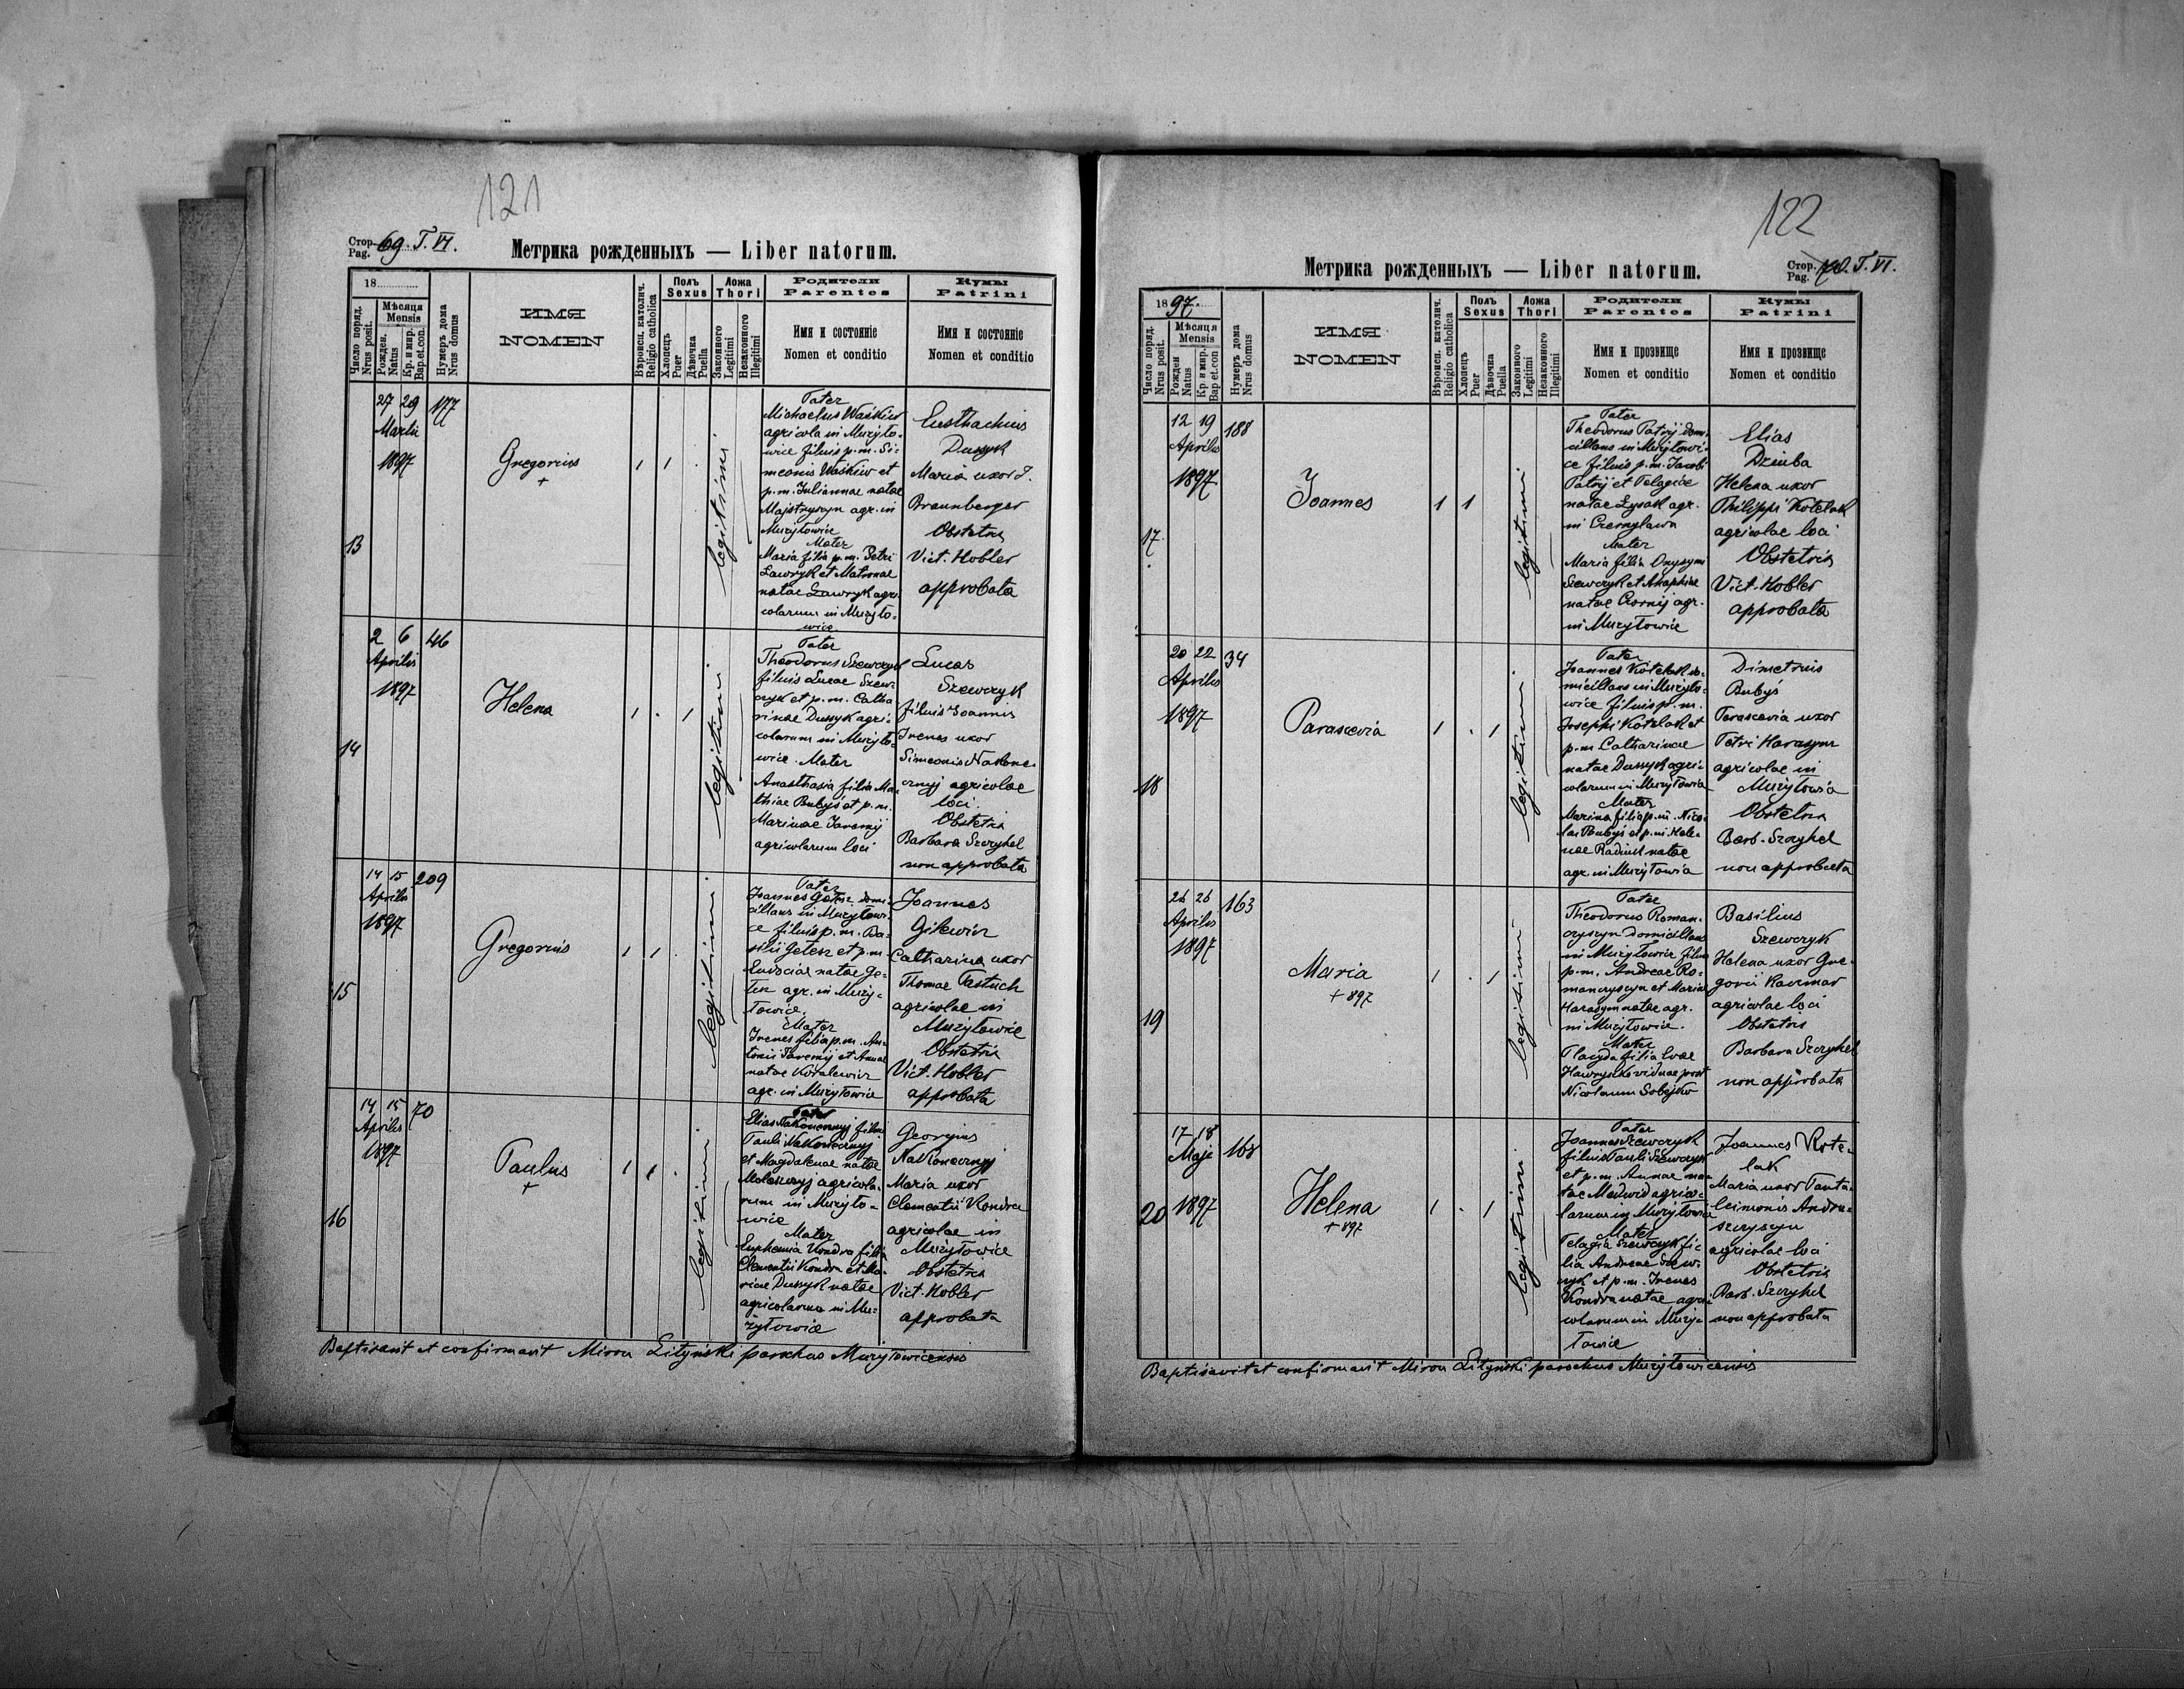 121
Стор. 69. T. VI.
Pag.
Метрика рожденныхъ — Liber natorum.
18
Число поряд.
Nrus posit.
Мѣсяця
Mensis
Рожден.
Natus
Кр. и мир.
Bap. et. con.
Нумеръ дома
Nrus domus
ИМЯ
NOMEN
Вѣроисп. католич.
Religio catholica
Полъ
Sexus
Хлопецъ
Puer
Дѣвочка
Puella
Ложа
Thori
Законного
Legitimi
Незаконного
Illegitimi
Родители
Parentes
Имя и состояніе
Nomen et conditio
Кумы
Patrini
Имя и состояніе
Nomen et conditio
13
27 29
Martii
1897
177
Gregorius
+
1 1 .
legitimi
Pater
Michaelus Waskiw
agricola in Muzyło-
wice filius p. m. Si-
meonis Waskiw et
p. m. Juliannae natae
Majstryszyn agr. in
Muzyłowice
Mater
Maria filia p. m. Petri
Ławryk et Matronae
natae Ławryk agri-
colarum in Muzyło-
wice
Eusthachius
Dussyk
Maria uxor J.
Braunberger
Obstetrix
Vict. Hobler
approbata
14
2 6
Aprilis
1897
46
Helena
1 . 1
legitimi
Pater
Theodorus Szewczyk
filius Lucae Szew-
czyk et p. m. Catha
rinae Dussyk agri-
colarum in Muzyło-
wice. Mater
Anasthasia filia Ma-
thiae Bubyś et p. m.
Marinae Jaremij
agricolarum loci
Lucas
Szewczyk
filius Joannis
Irenes uxor
Simeonis Nakone-
cznyj agricolae
loci.
Obstetrix
Barbara Szczyhel
non approbata
15
14 15
Aprilis
1897
209
Gregorius
1 1 .
legitimi
Pater
Joannes Getesz domi-
cillans in Muzyłowi-
ce filius p. m. Ba-
silii Getesz et p. m.
Eudociae natae Ge-
tesz agr. in Muzy-
łowice.
Mater
Irenes filia p. m. An-
tonii Jaremij et Annae
natae Kowalewicz
agr. in Muzyłowice
Joannes
Gilewicz
Catharina uxor
Thomae Pastuch
agricolae in
Muzyłowice
Obstetrix
Vict. Hobler
approbata
16
14 15
Aprilis
1897
70
Paulus
+
1 1 .
legitimi
Pater
Elias Nakonecznyj filius
Pauli Nakonecznyj
et Magdalenae natae
agricola-
rum in Muzyło-
wice
Mater
Euphemia Kondra filia
Clementii Kondra et Ma-
riae Dussyk natae
agricolarum in Mu-
zyłowice
Georgius
Nakonecznyj
Maria uxor
Clementii Kondra
agricolae in
Muzyłowice
Obstetrix
Vict. Hobler
approbata
Baptisavit et confirmavit Miron Lityński parochus Muzyłowicensis
122
Стор. 70. T. VI.
Pag.
Метрика рожденныхъ — Liber natorum.
1897
Число поряд.
Nrus posit.
Мѣсяця
Mensis
Рожден
Natus
Кр. и мир.
Bap et. con
Нумеръ дома
Nrus domus
ИМЯ
NOMEN
Вѣроисп. католич.
Religio catholica
Полъ
Sexus
Хлопецъ
Puer
Дѣвочка
Puella
Ложа
Thori
Законного
Legitimi
Незаконного
Illegitimi
Родители
Parentes
Имя и прозвище
Nomen et conditio
Кумы
Patrini
Имя и прозвище
Nomen et conditio
17
12 19
Aprilis
1897
188
Joannes
1 1
legitimi
Pater
Theodorus Patrij domi-
cillans in Muzyłowi-
ce filius p. m. Jacobi
Patrij et Pelagiae
natae Łysak agr.
in Czernylawa
Mater
Maria filia Onysymi
Szewczyk et Anaphiae
natae Czornij agr.
in Muzyłowice
Elias
Dziuba
Helena uxor
Philippi Kotelak
agricolae loci
Obstetrix
Vict. Hobler
approbata
18
20 22
Aprilis
1897
34
Parascevia
1 . 1
legitimi
Pater
Joannes Kotelak do-
micillans in Muzyło-
wice filius p. m.
Josephi Kotelak et
p. m Catharinae
natae Dussyk agri-
colarum in Muzyłowice
Mater
Marina filia p. m. Nico-
lai Bubyś et p. m. Hele-
nae Radiuk natae
agr. in Muzyłowice
Dimetrius
Bubyś
Parascevia uxor
Petri Harasym
agricolae in
Muzyłowice
Obstetrix
Barb. Szczyhel
non approbata
19
26 26
Aprilis
1897
163
Maria
+ 897
1 . 1
legitimi
Pater
Theodorus Roman-
czyszyn domicillans
in Muzyłowice filius
p. m. Andreae Ro-
manczyszyn et Mariae
Harasym natae agr.
in Muzyłowice.
Mater
filia Evae
viduae post
Nicolaum Sobejko
Basilius
Szewczyk
Helena uxor Gre-
gorii Kaczmar
agricolae loci
Obstetrix
Barbara Szczyhel
non approbata
20
17 18
Maji
1897
168
Helena
+ 897
1 . 1
legitimi
Pater
Joannes Szewczyk
filius Pauli Szewczyk
et p. m. Annae na-
tae Medwid agrico-
larum in Muzyłowice
Mater
Pelagia Szewczyk fi-
lia Andreae Szew-
czyk et p. m. Irenes
Kondra natae agri-
colarum in Muzy-
łowice
Joannes Kote-
lak
Maria uxor Panta-
leimonis Andru-
szczyszyn
agricolae loci
Obstetrix
Barb. Szczyhel
non approbata
Baptisavit et confirmavit Miron Lityński parochus Muzyłowicensis